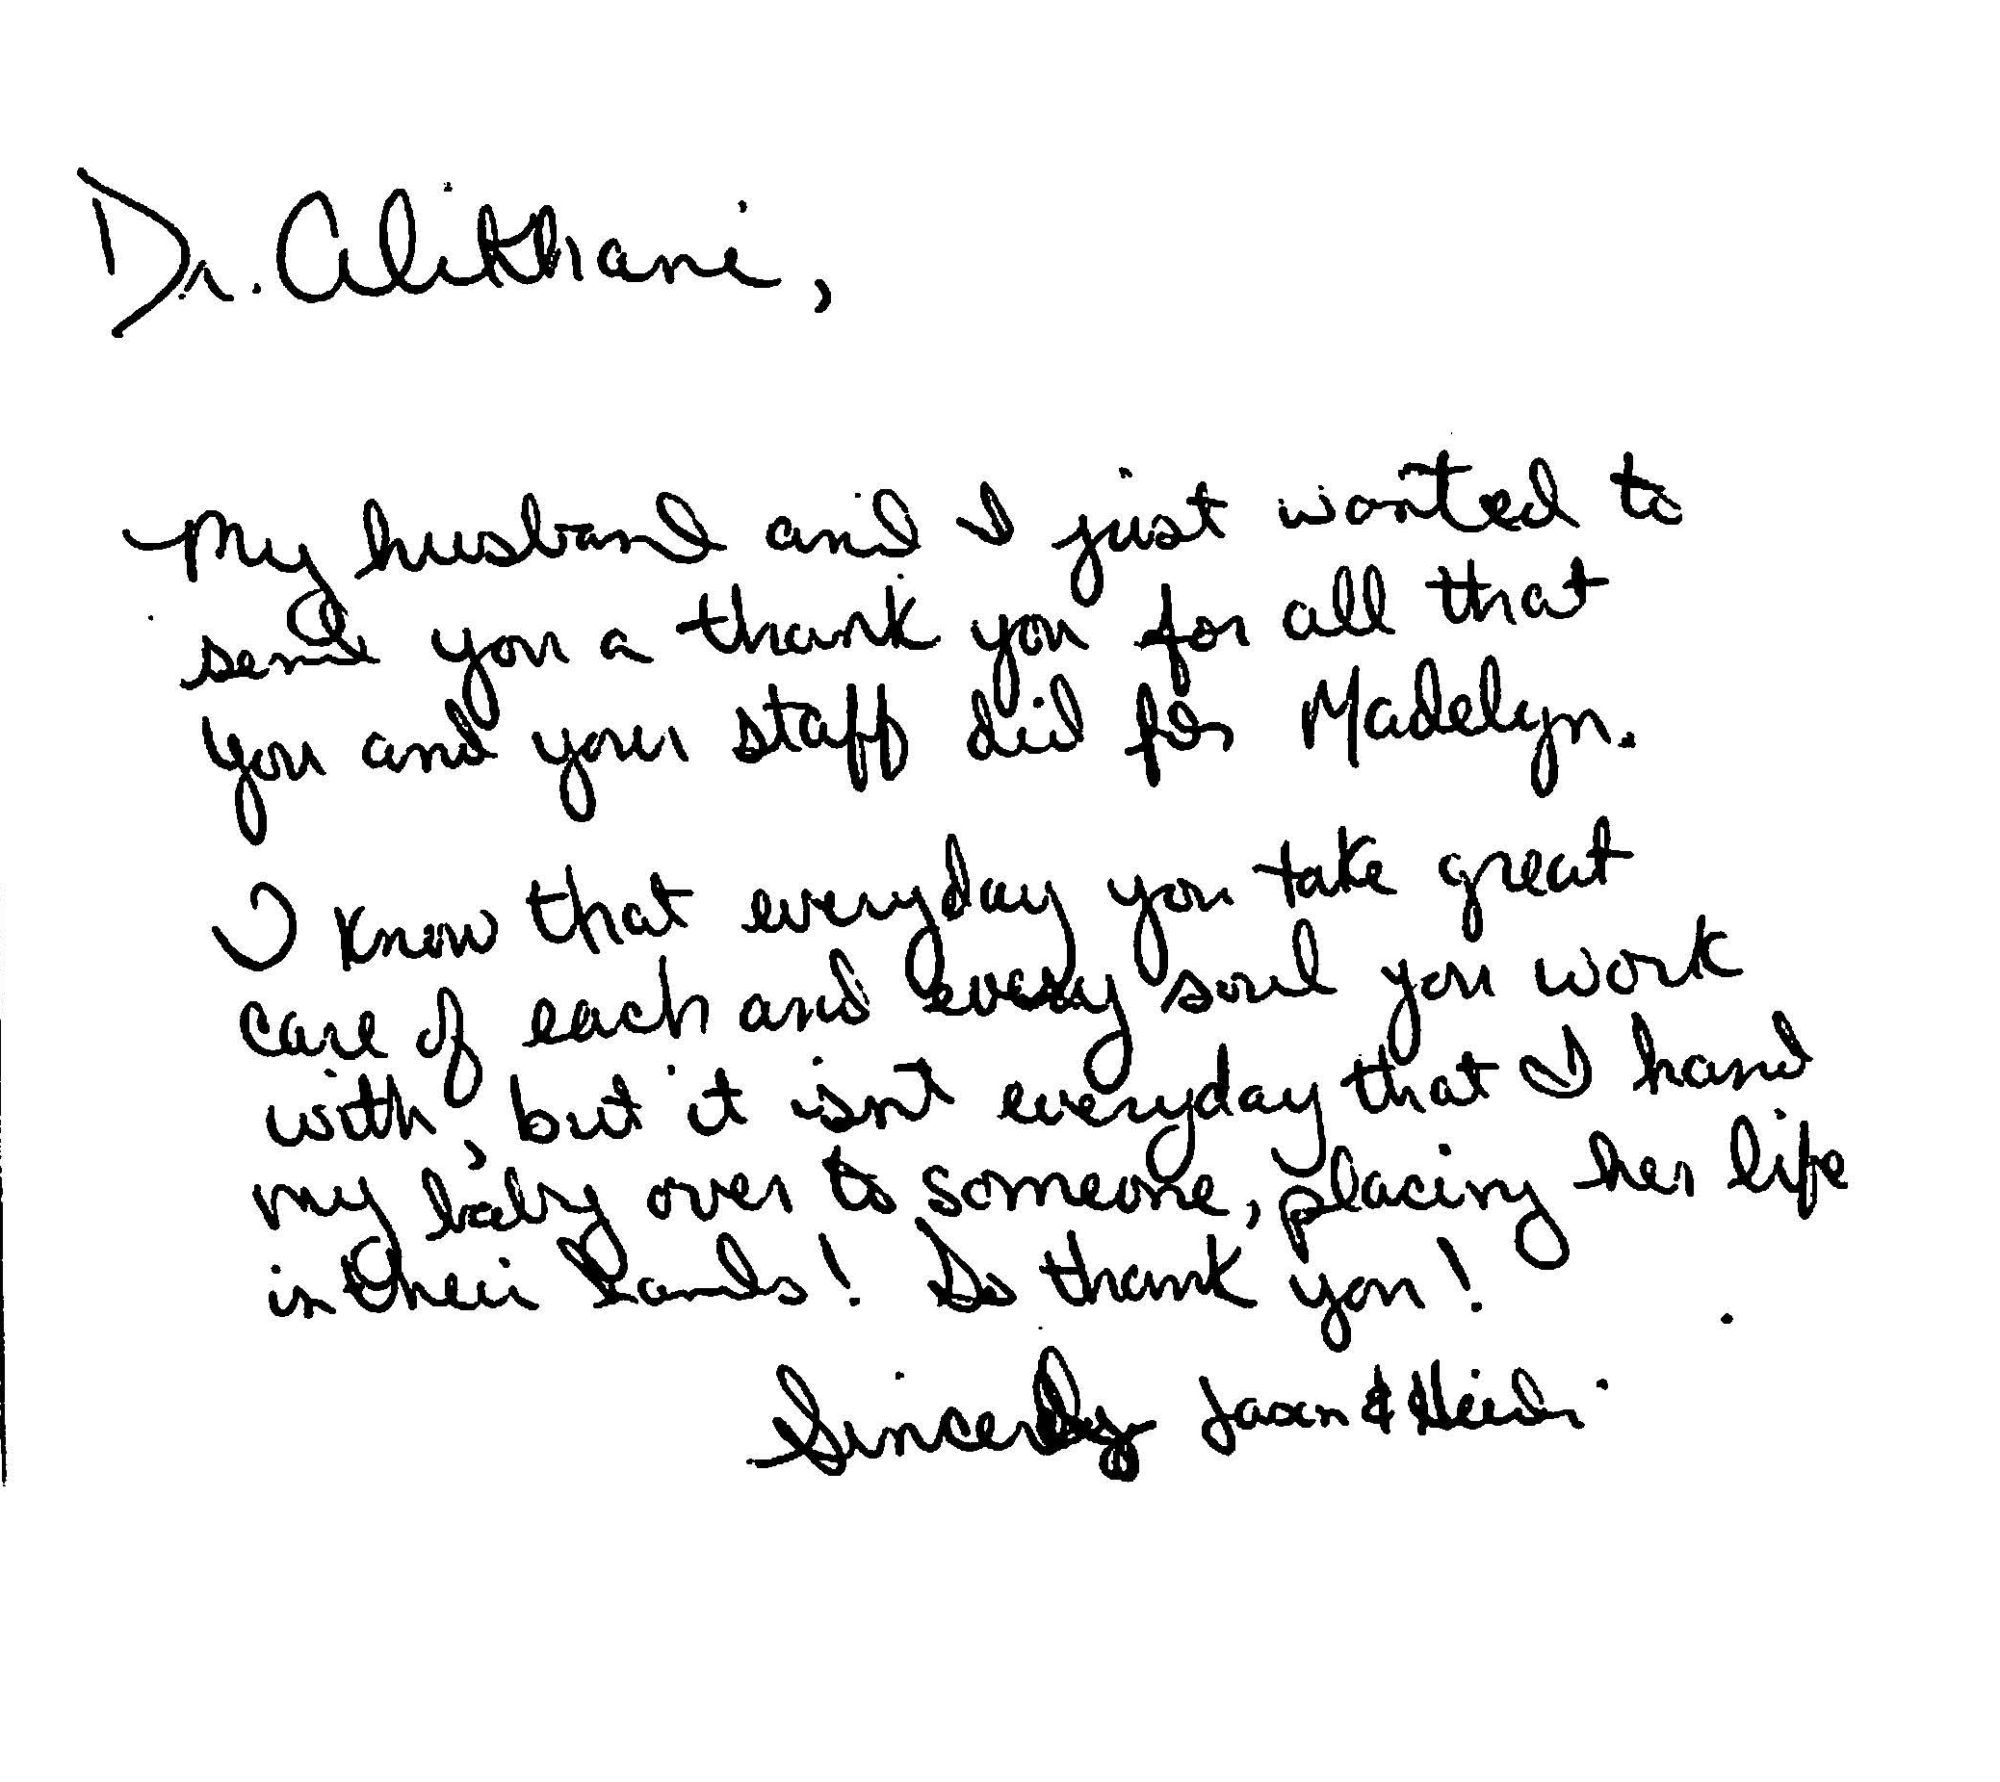 Dr. Alikhani,
My husband and I just wanted to
send you a thank you for all that
you and your staff did for Madelyn.
I know that everyday you take great
care of each and every soul you work
with, but it isn't everyday that I hand
my baby over to someone, placing her life
in their hands! So thank you!
Sincerely Jason & Heidi